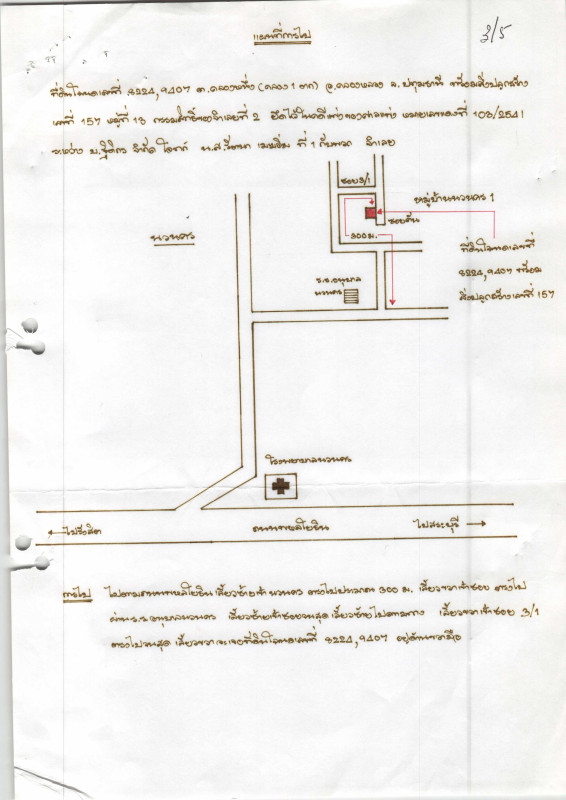 แผนที่การไป
3/5
ที่ดินโฉนดเลขที่ 8224,9407 ต.คลองหนึ่ง (คลอง 1 ตก) อ.คลองหลวง จ.ปทุมธานี พร้อมสิ่งปลูกสร้าง
เลขที่ 157 หมู่ที่ 13 กรรมสิทธิ์ของจำเลยที่ 2 ยึดไว้ในคดีแพ่งของศาลแพ่ง หมายเลขแดงที่ 103/2541
ระหว่าง บ. จำกัด โจทก์ น.ส. ที่ 1 กับพวก จำเลย
ซอย 3/1
หมู่บ้านนวนคร 1
นวนคร
ซอยตัน
300 ม.
ที่ดินโฉนดเลขที่
8224,9407 พร้อม
สิ่งปลูกสร้างเลขที่ 157
ร.ร.อนุบาล
นวนคร
โรงพยาบาลนวนคร
ไปรังสิต
ถนนพหลโยธิน
ไปสระบุรี
การไป ไปตามถนนพหลโยธิน เลี้ยวซ้ายเข้า นวนคร ตรงไปประมาณ 300 ม. เลี้ยวขวาเข้าซอย ตรงไป
ผ่าน ร.ร.อนุบาลนวนคร เลี้ยวซ้ายเข้าซอยจนสุด เลี้ยวซ้ายไปตามทาง เลี้ยวขวาเข้าซอย 3/1
ตรงไปจนสุด เลี้ยวขวา จะเจอที่ดินโฉนดเลขที่ 8224,9407 อยู่ด้านขวามือ